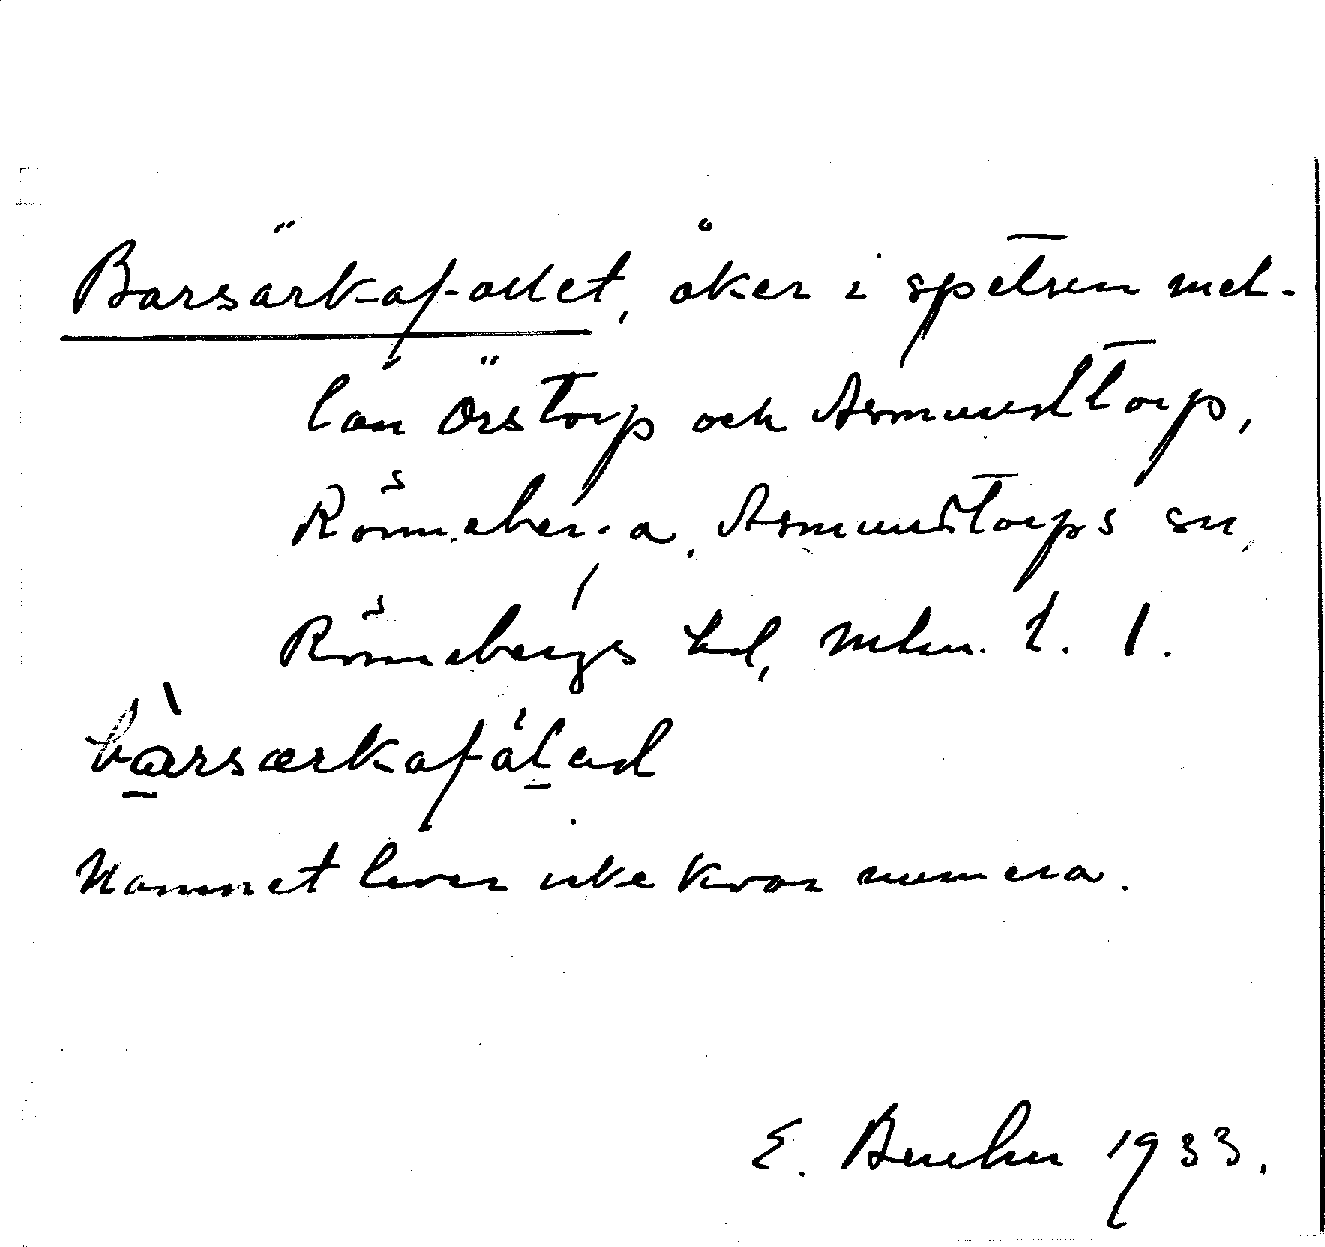 Barsärkafallet, åker i spetsen mel-
lan Örstorp och Asmundtorp,
Rönneberga, Asmundtorps sn,
Rönnebergs hd, Mlm. l. l.
Namnet lever icke kvar numera.
E. 1933.